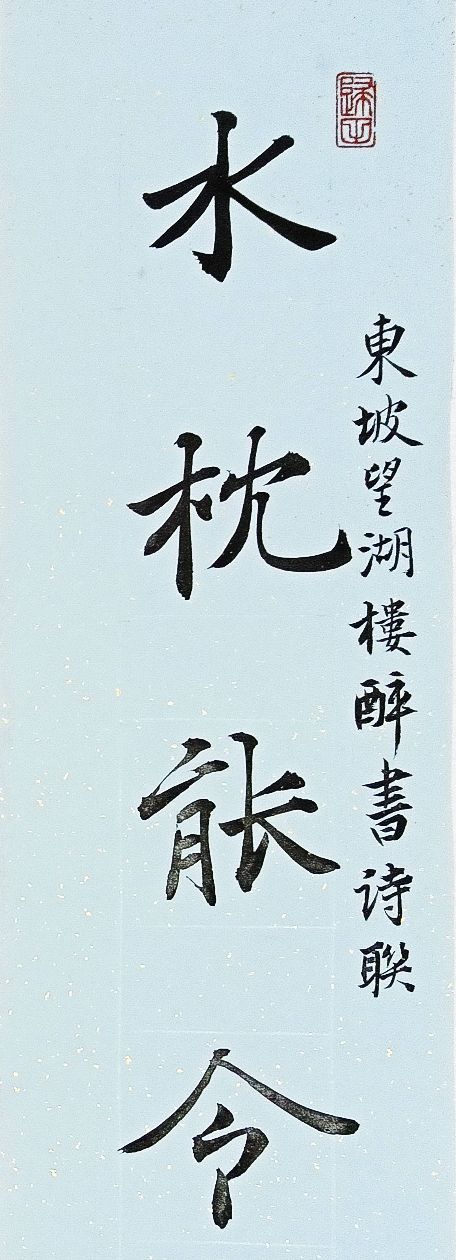 東坡望湖樓醉書诗聯
水枕能令